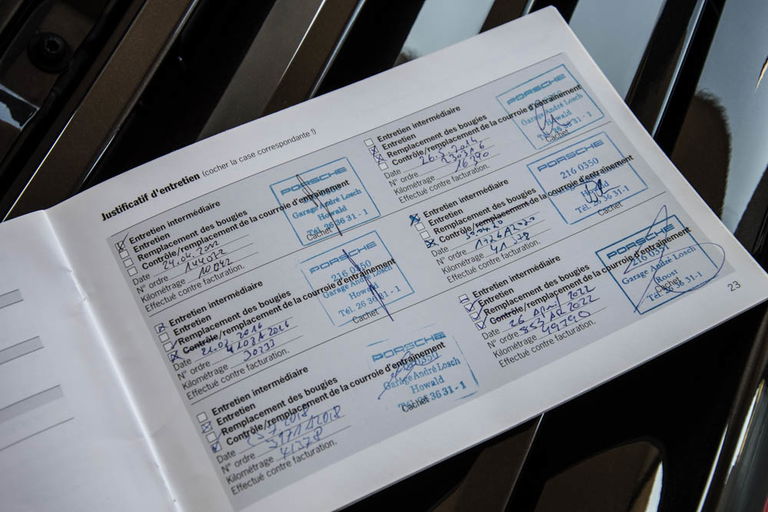 Justificatif d'entretien (cocher la case correspondante !)
Entretien intermédiaire
Entretien
Remplacement des bougies
Contrôle/remplacement de la courroie d'entraînement
Date 24.04.2012
N° ordre
Kilométrage
Effectué contre facturation.
PORSCHE
Garage André Losch
Howald
Tél. 26 36 31 - 1
Cachet
Entretien intermédiaire
Entretien
Remplacement des bougies
Contrôle/remplacement de la courroie d'entraînement
Date
N° ordre
Kilométrage 30233
Effectué contre facturation.
PORSCHE
216 0350
Garage André Losch
Howald
Tél. 26 36 31 - 1
Cachet
Entretien intermédiaire
Entretien
Remplacement des bougies
Contrôle/remplacement de la courroie d'entraînement
Date
N° ordre
Kilométrage 41378
Effectué contre facturation.
PORSCHE
Garage André Losch
Howald
Tél. 26 36 31 - 1
Cachet
Entretien intermédiaire
Entretien
Remplacement des bougies
Contrôle/remplacement de la courroie d'entraînement
Date
N° ordre
Kilométrage
Effectué contre facturation.
PORSCHE
Garage André Losch
Howald
Cachet
Entretien intermédiaire
Entretien
Remplacement des bougies
Contrôle/remplacement de la courroie d'entraînement
Date
N° ordre
Kilométrage
Effectué contre facturation.
PORSCHE
216 0350
Tél. 26 36 31 - 1
Cachet
Entretien intermédiaire
Entretien
Remplacement des bougies
Contrôle/remplacement de la courroie d'entraînement
Date
N° ordre
Kilométrage 49790
Effectué contre facturation.
PORSCHE
Garage André Losch
Roost
Tél. 26 36 31 - 1
Cachet
23